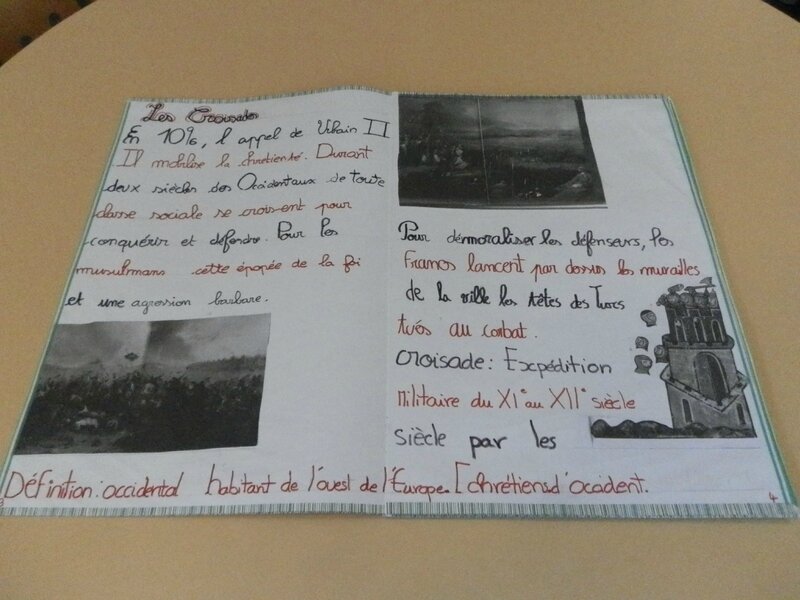 Les Croisades
En 1096, l appel de Urbain II
Il mobilise la chretienté. Durant
deux siècles des Occidentaux de toute
classe sociale se croisent pour
conquérir et défendre. Pour les
musulmans cette épopée de la foi
et une agression barbare.
Pour démoraliser les défenseurs, les
Francs lancent par dessus les murailles
de la ville les têtes des Turcs
tués au combat.
Croisade: Expédition
militaire du XI° au XII° siècle
siècle par les
Définition: occidental habitant de l'ouest de l'Europe. [chrétiens d'ocident.
4